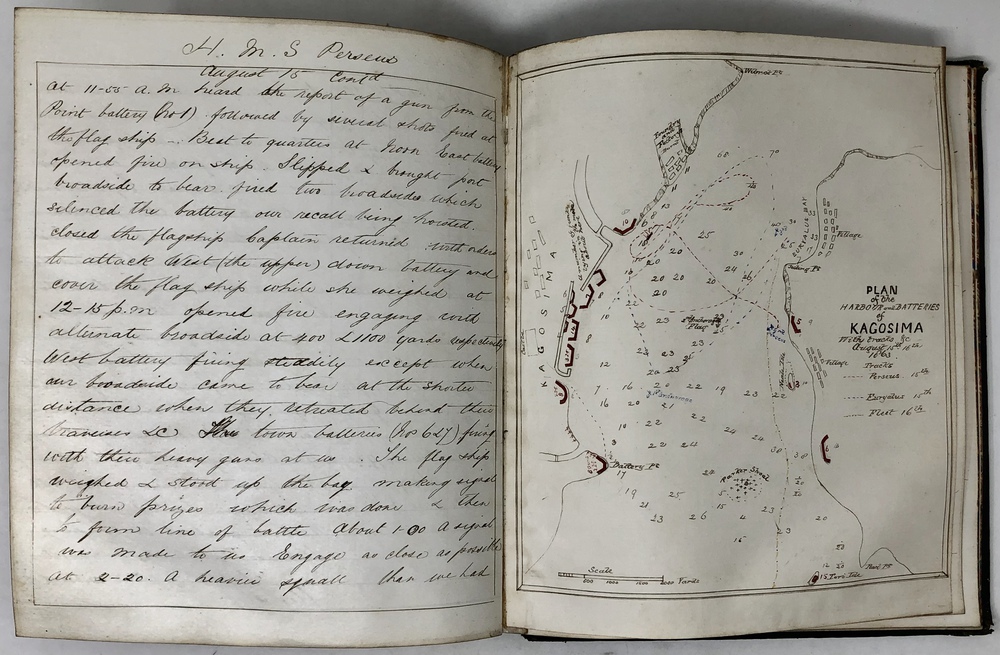 H. M. S Perseus
August 15 Contd
at 11-55 a.m heard the report of a gun from the
Point battery (No 1) followed by several shots fired at
the flag ship - Beat to quarters at Noon East battery
opened fire on ship. Slipped & brought port
broadside to bear. fired two broadsides which
silenced the battery our recall being hoisted.
closed the flagship Captain returned with orders
to attack West (the upper) down battery and
cover the flag ship while she weighed at
12-15 p.m opened fire engaging with
alternate broadside at 400 & 1100 yards respectively
West battery firing steadily except when
our broadside came to bear at the shorter
distance when they retreated behind their
traverses &c The town batteries (Nos 6 & 7) firing
with their heavy guns at us. The flag ship
weighed & stood up the bay making signal
to burn prizes which was done & then
to form line of battle About 1-00 A signal
was made to us Engage as close as possible
at 2-20. A heavier squall than we had
Wilmot Pt
EURYALUS BAY
Village
KAGOSIMA
PLAN
of the
HARBOUR and BATTERIES
of
KAGOSIMA
With tracks &c
August 15th 16th
1863
Tracks
Perseus 15th
Euryalus 15th
Fleet 16th
Village
Battery Pt
Parker Shoal
Scale
500 1000 1500 2000 Yards